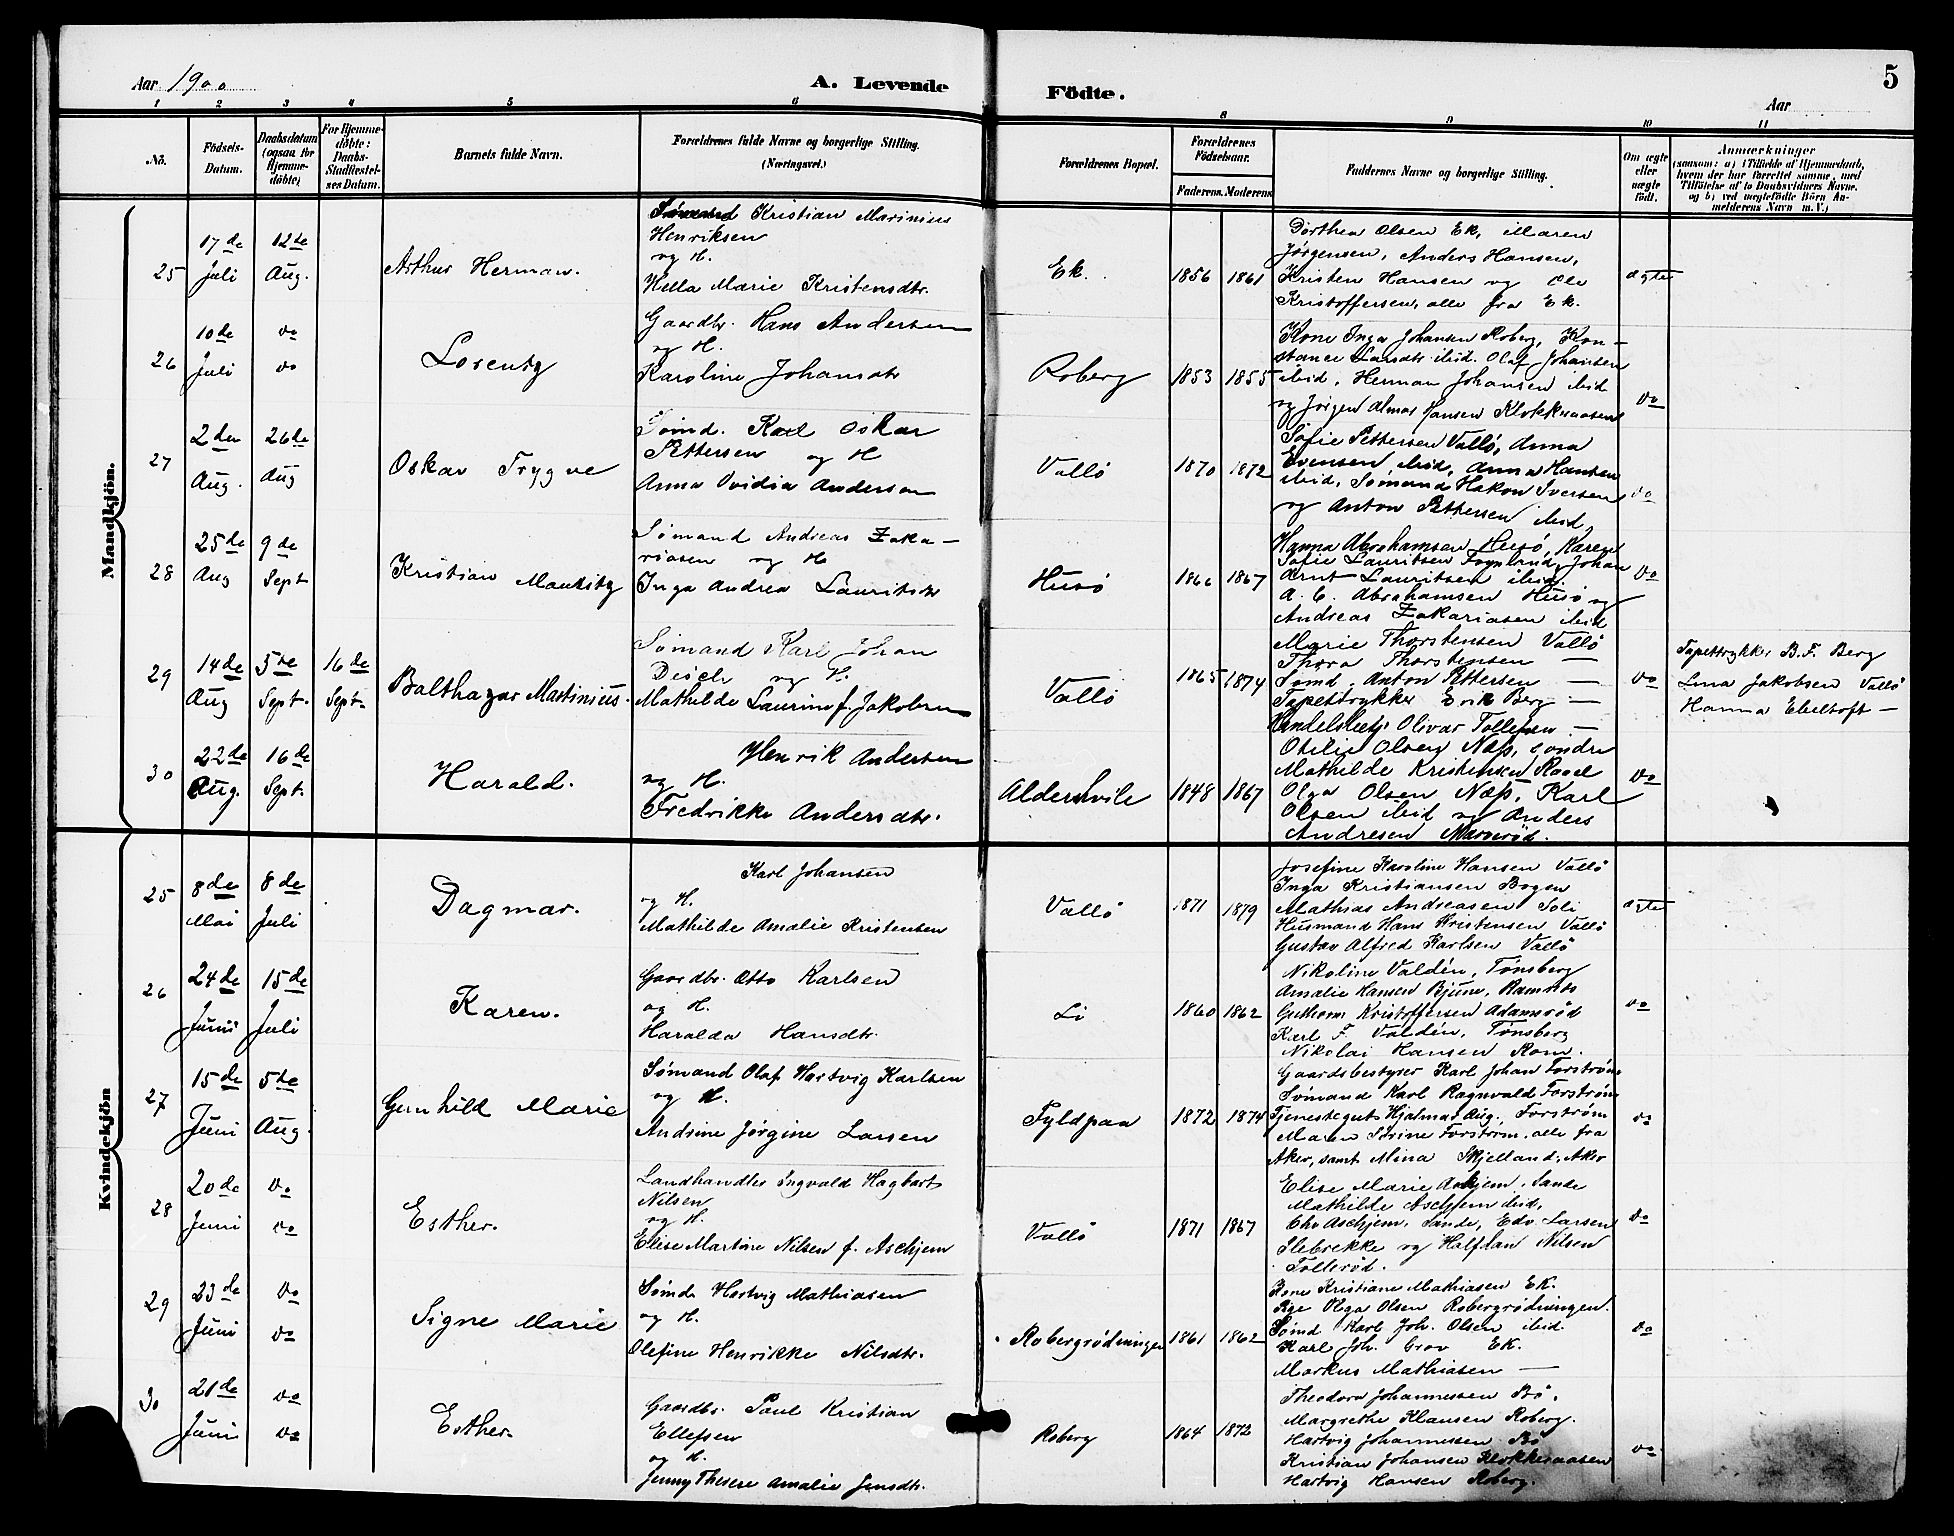 Aar 1900
A. Levende
Födte.
5
Aar
1 2 3 4 5 6 8 9 10 11
No.
Födsels-
Datum.
Daabsdatum
(ogsaa for
Hjemme-
döbte)
For Hjemme-
döbte:
Daabs-
Stadfæstel-
ses Datum.
Barnets fulde Navn.
Forældrenes fulde Navne og borgerlige Stilling.
(Næringsvei.)
Forældrenes Bopæl.
Forældrenes
Födselsaar.
Faderens. Moderens
Faddernes Navne og borgerlige Stilling.
Om ægte
eller
uægte
födt.
Anmærkninger
(saasom: a) i Tilfælde af Hjemmedaab,
hvem der har forrettet samme, med
Tilföielse af to Daabsvidners Navne,
og b) ved uægtefödte Börn An-
melderens Navn m. V.)
Mandkjön.
25
17de
Juli
12te
Aug.
Arthur Herman.
Sømand Kristian Marinius
Henriksen
og H.
Hella Marie Kristensdtr.
Ek.
1856 1861
Dorthea Olsen Ek, Maren
Jørgensen, Anders Hansen,
Kristen Hansen og Ole
Kristoffersen, alle fra Ek.
ægte
26
10de
Juli
do
do
Lorentz
Gaardbr. Hans Andersen
og H.
Karoline Johansdtr
Roberg
1853 1855
Kone Inga Johansen Roberg, Kon-
stance Larsdtr ibid. Olaf Johansen
ibid, Herman Johansen ibid
og Jørgen Almar Hansen Klokkeraasen
do
27
2den
Aug.
26de
Aug
Oskar Trygve
Sømd. Karl Oskar
Pettersen og H
Anna Ovidia Anderson
Vallö
1870 1872
Sofie Pettersen Vallö, Anna
Evensen ibid, Anna Hansen
ibid, Sømand Hakon Iversen
og Anton Pettersen ibid,
do
28
25de
Aug
9de
Sept
Kristian Mauritz
Sømand Andreas Zaka-
riasen og H
Inga Andrea Lauritsdtr
Husö
1866 1867
Hanna Abrahamsen Husö, Karen
Sofie Lauritsen Fognland, Johan
Arnt Lauritsen ibid.
A. C. Abrahamsen Husö og
Andreas Zakariasen ibid
do
29
14de
Aug
5de
Sept.
16de
Sept.
Balthazar Martinius.
Sømand Karl Johan
Disch og H.
Mathilde Laurine f. Jakobsen
Vallö
1865 1874
Marie Thorstensen Vallö
Thora Thorstensen —
Sømd. Anton Pettersen —
Tapettrykker Erik Berg —
Handelsbetj. Olivar Tollefsen —
do
Tapettrykker B. F. Berg
Lina Jakobsen Vallö
Hanna Ebeltoft —
30
22de
Aug.
16de
Sept.
Harald.
Henrik Andersen
og H.
Fredrikke Andersdtr.
Aldershvile
1848 1867
Otilie Olsen Næs, søndre
Mathilde Kristensen Rael
Olga Olsen Næs, Karl
Olsen ibid og Anders
Andresen Marerød.
do
Kvindekjön
25
8de
Mai
8de
Juli
Dagmar.
Karl Johansen
og H.
Mathilde Amalie Kristensen
Vallö
1871 1879
Josefine Karoline Hansen Vallö
Inga Kristiansen Bogen
Mathias Andreasen Soli
Husmand Hans Kristensen Vallö
Gustav Alfred Karlsen Vallö
ægte
26
24de
Juni
15de
Juli
Karen.
Gaardbr. Otto Karlsen
og H.
Haralda Hansdtr.
Li
1860 1862
Nikoline Valdén, Tønsberg
Amalie Hansen Bjune, Ramnes
Guthorm Kristoffersen Adamsrød
Karl F. Valdén, Tønsberg
Nikolai Hansen Rom.
do
27
15de
Juni
5de
Aug.
Gunhild Marie
Sømand Olaf Hartvig Karlsen
og H.
Andrine Jørgine Larsen
Fyldpaa
1872 1874
Gaardsbestyrer Karl Johan Forstrøm
Sømand Karl Ragnvald Forstrøm
Tjenestegut Hjalmar Aug. Forstrøm
Maren Sørine Forstrøm, alle fra
Aker, samt Mina Skjelland, Aker
do
28
20de
Juni
do
do
Esther.
Landhandler Ingvald Hagbart
Nilsen
og H.
Elise Martine Nilsen f. Aschjem
Vallö
1871 1867
Elise Marie Askjem, Sande
Mathilde Aschjem ibid,
Chr Aschjem, Sande, Edv. Larsen
Slebrekke og Halfdan Nilsen
Tollerød.
do
29
23de
Juni
do
do
Signe Marie
Sømd. Hartvig Mathiasen
og H.
Olefine Henrikke Nilsdtr.
Robergrødningen
1861 1862
Kone Kristiane Mathiasen Ek.
Pige Olga Olsen Robergrødningen.
Sømd Karl Joh. Olsen ibid.
Karl Joh. Crov Ek.
Markus Mathiasen —
do
30
21de
Juni
do
do
Esther.
Gaardbr. Paul Kristian
Ellefsen
og H.
Jenny Therese Amalie Jensdtr.
Roberg
1864 1872
Theodora Johannessen Bö,
Margrethe Klausen Roberg.
Hartvig Johannessen Bö
Kristian Johansen Klokkeraasen
Hartvig Hansen Roberg.
do